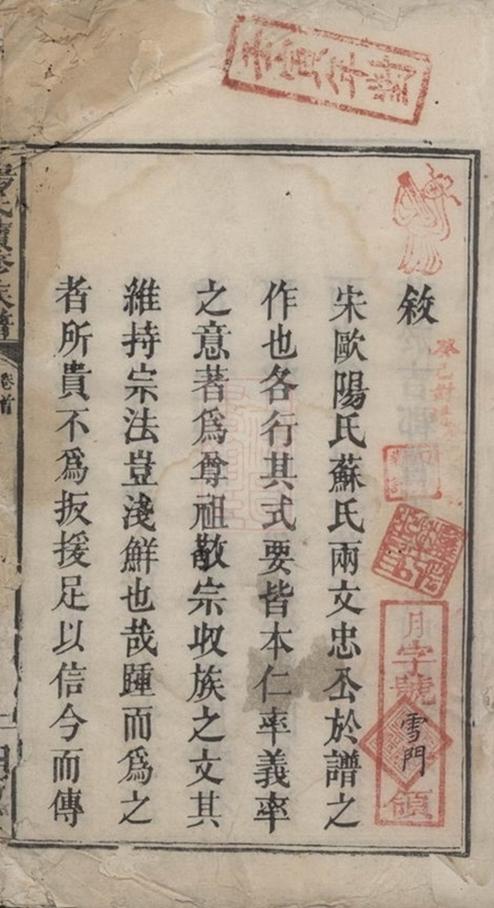 敘
宋歐陽氏蘇氏兩文忠公於譜之
作也各行其式要皆本仁率義率
之意著為尊祖敬宗收族之文其
維持宗法豈淺鮮也哉踵而為之
者所貴不為扳援足以信今而傳
月字號
雪門
領
氏續修族譜
卷首